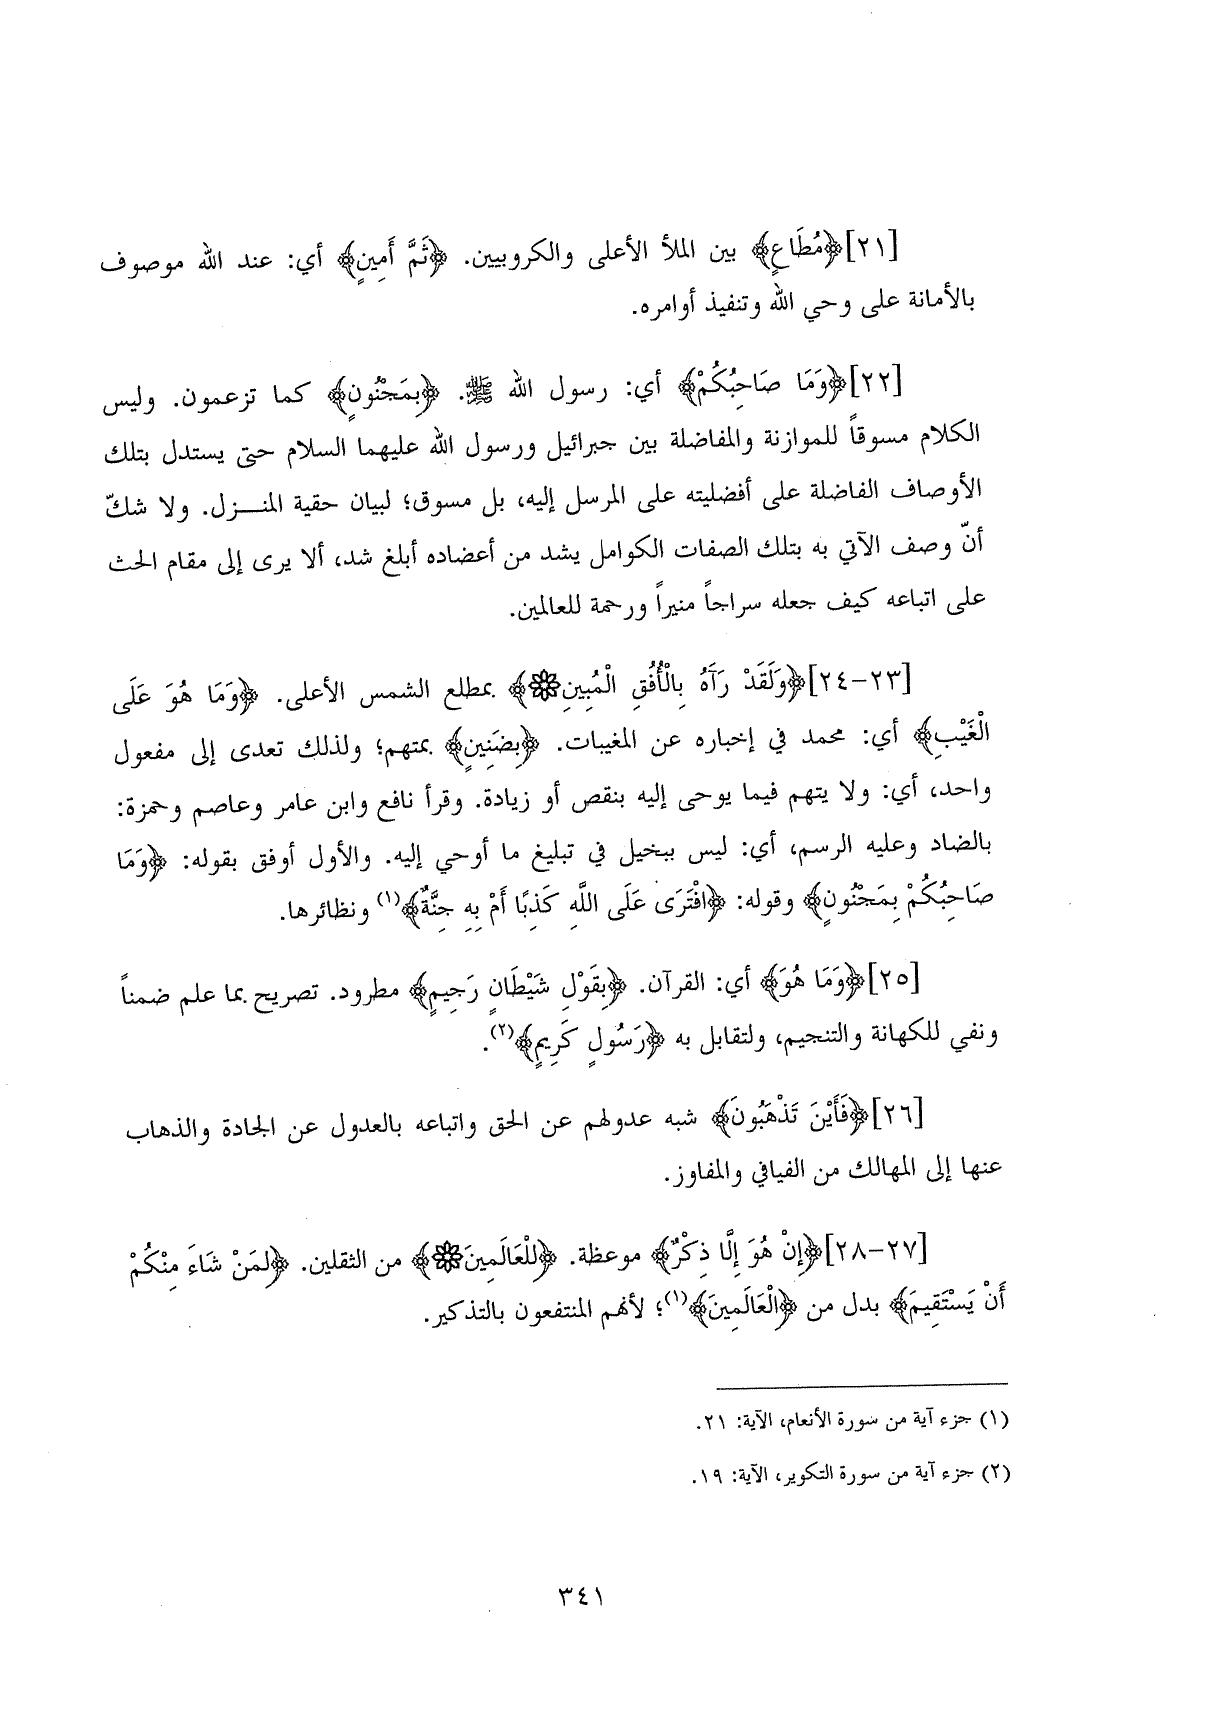 [٢١]﴿مُطَاعٍ﴾ بين الملأ الأعلى والكروبيين. ﴿ثَمَّ أَمِينٍ﴾ أي: عند الله موصوف
بالأمانة على وحي الله وتنفيذ أوامره.
[٢٢]﴿وَمَا صَاحِبُكُمْ﴾ أي: رسول الله ﷺ. ﴿بِمَجْنُونٍ﴾ كما تزعمون. وليس
الكلام مسوقاً للموازنة والمفاضلة بين جبرائيل ورسول الله عليهما السلام حتى يستدل بتلك
الأوصاف الفاضلة على أفضليته على المرسل إليه، بل مسوق؛ لبيان حقية المنـــزل. ولا شكّ
أنّ وصف الآتي به بتلك الصفات الكوامل يشد من أعضاده أبلغ شد، ألا يرى إلى مقام الحث
على اتباعه كيف جعله سراجاً منيراً ورحمة للعالمين.
[٢٣-٢٤]﴿وَلَقَدْ رَآهُ بِالْأُفُقِ الْمُبِينِ۞﴾ بمطلع الشمس الأعلى. ﴿وَمَا هُوَ عَلَى
الْغَيْبِ﴾ أي: محمد في إخباره عن المغيبات. ﴿بِضَنِينٍ﴾ بمتهم؛ ولذلك تعدى إلى مفعول
واحد، أي: ولا يتهم فيما يوحى إليه بنقص أو زيادة. وقرأ نافع وابن عامر وعاصم وحمزة:
بالضاد وعليه الرسم، أي: ليس ببخيل في تبليغ ما أوحي إليه. والأول أوفق بقوله: ﴿وَمَا
صَاحِبُكُمْ بِمَجْنُونٍ﴾ وقوله: ﴿افْتَرَى عَلَى اللَّهِ كَذِبًا أَمْ بِهِ جِنَّةٌ﴾(١) ونظائرها.
[٢٥]﴿وَمَا هُوَ﴾ أي: القرآن. ﴿بِقَوْلِ شَيْطَانٍ رَجِيمٍ﴾ مطرود. تصريح بما علم ضمناً
ونفي للكهانة والتنجيم، ولتقابل به ﴿رَسُولٍ كَرِيمٍ﴾(٢).
[٢٦]﴿فَأَيْنَ تَذْهَبُونَ﴾ شبه عدولهم عن الحق واتباعه بالعدول عن الجادة والذهاب
عنها إلى المهالك من الفيافي والمفاوز.
[٢٧-٢٨]﴿إِنْ هُوَ إِلَّا ذِكْرٌ﴾ موعظة. ﴿لِلْعَالَمِينَ۞﴾ من الثقلين. ﴿لِمَنْ شَاءَ مِنْكُمْ
أَنْ يَسْتَقِيمَ﴾ بدل من ﴿الْعَالَمِينَ﴾(١)؛ لأنهم المنتفعون بالتذكير.
(١) جزء آية من سورة الأنعام، الآية: ٢١.
(٢) جزء آية من سورة التكوير، الآية: ١٩.
٣٤١